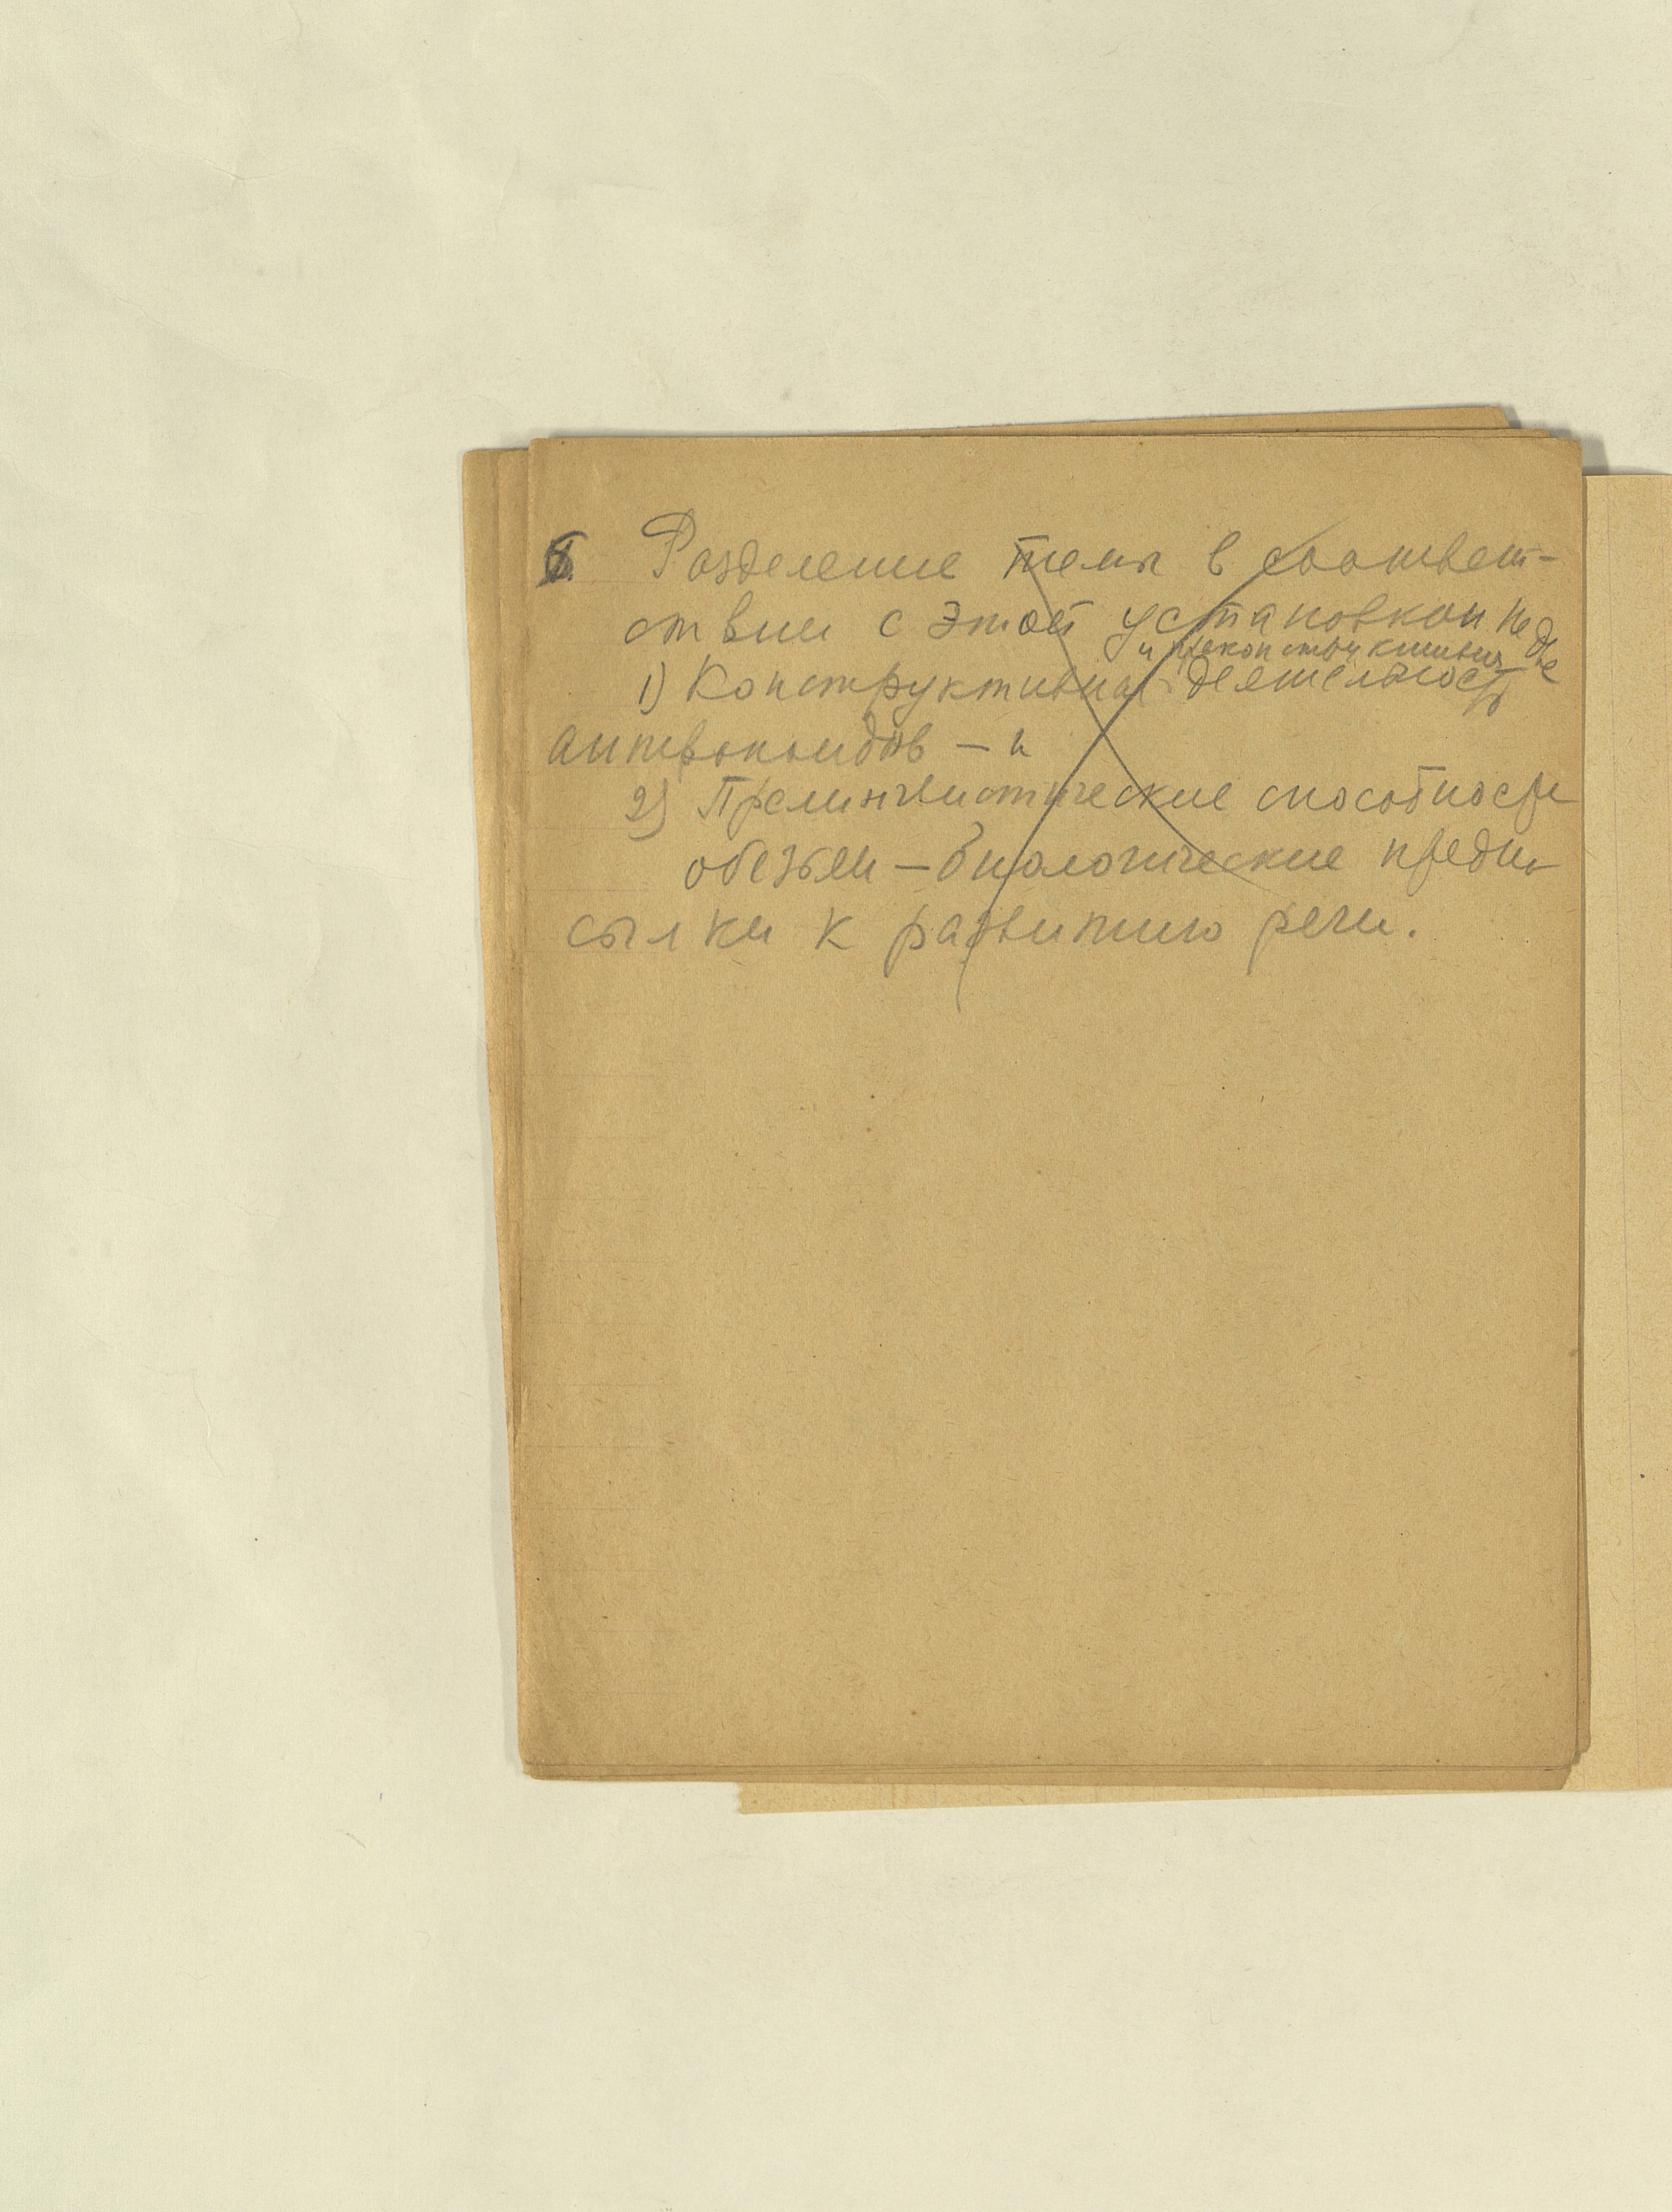 Разделение темы в соответ-
ствии с этой установкой на две
и неконструктивная
1) Конструктивная деятельность
антропоидов — и
2) Прелингвистические способности
обезьян — биологические предпо
сылки к развитию речи.